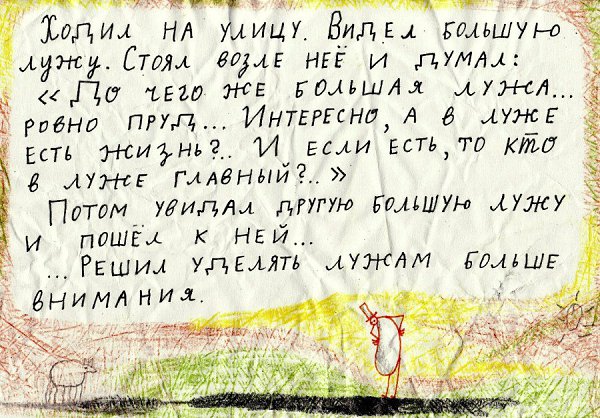 Ходил на улицу. Видел большую
лужу. Стоял возле неё и думал:
«До чего же большая лужа...
ровно пруд... Интересно, а в луже
есть жизнь?.. И если есть, то кто
в луже главный?..»
Потом увидал другую большую лужу
и пошёл к ней...
...Решил уделять лужам больше
внимания.